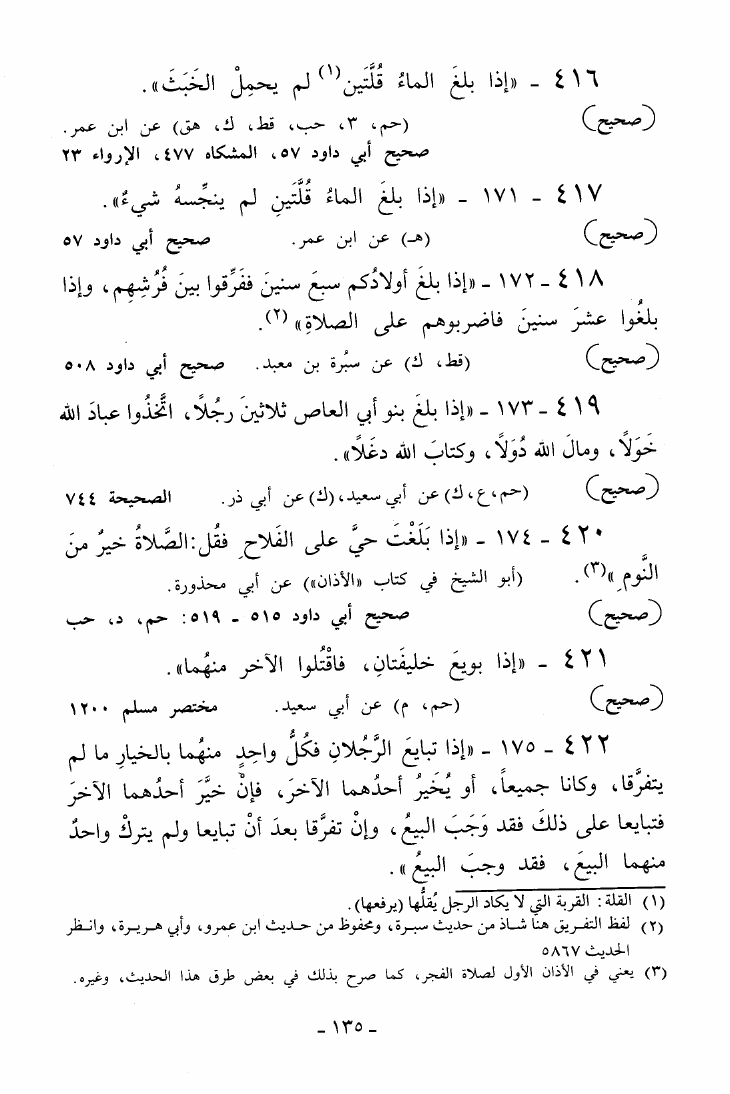 ٤١٦ - «إذا بلغَ الماءُ قُلَّتَين(١) لم يحمِلْ الخَبَثَ».
(صحيح) (حم، ٣، حب، قط، ك، هق) عن ابن عمر.
صحيح أبي داود ٥٧، المشكاه ٤٧٧، الإرواء ٢٣
٤١٧ - ١٧١ - «إذا بلغَ الماءُ قُلَّتَينِ لم ينجِّسهُ شيءٌ».
(صحيح) (هـ) عن ابن عمر. صحيح أبي داود ٥٧
٤١٨ - ١٧٢ - «إذا بلغَ أولادُكم سبعَ سنينَ ففَرِّقوا بينَ فُرُشِهِم، وإذا
بلغُوا عشرَ سنينَ فاضربوهم على الصلاةِ»(٢).
(صحيح) (قط، ك) عن سبُرة بن معبد. صحيح أبي داود ٥٠٨
٤١٩ - ١٧٣ - «إذا بلغَ بنو أبي العاص ثلاثينَ رجُلاً، اتَّخذُوا عبادَ الله
خَوَلاً، ومالَ الله دُوَلاً، وكتابَ الله دغَلاً».
(صحيح) (حم،ع،ك) عن أبي سعيد،(ك) عن أبي ذر. الصحيحة ٧٤٤
٤٢٠ - ١٧٤ - «إذا بَلَغْتَ حيَّ على الفَلاحِ فقُل:الصَّلاةُ خيرٌ منَ
النَّومِ»(٣). (أبو الشيخ في كتاب «الأذان») عن أبي محذورة.
(صحيح) صحيح أبي داود ٥١٥ - ٥١٩: حم، د، حب
٤٢١ - «إذا بويعَ خليفَتانِ، فاقْتُلوا الآخر منهُما».
(صحيح) (حم، م) عن أبي سعيد. مختصر مسلم ١٢٠٠
٤٢٢ - ١٧٥ - «إذا تبايعَ الرَّجُلانِ فكُلُّ واحِدٍ منهُما بالخيارِ ما لم
يتفرَّقا، وكانا جميعاً، أو يُخَيرُ أحدُهما الآخرَ، فإنْ خيَّرَ أحدُهما الآخرَ
فتبايعا على ذلكَ فقد وَجَبَ البيعُ، وإنْ تفرَّقا بعدَ أنْ تبايعا ولم يتركْ واحدٌ
منهما البيعَ، فقد وجبَ البيعُ».
(١) القلة: القربة التي لا يكاد الرجل يُقلُّها (يرفعها).
(٢) لفظ التفريق هنا شاذ من حديث سبرة، ومحفوظ من حديث ابن عمرو، وأبي هريرة، وانظر
الحديث ٥٨٦٧
(٣) يعني في الأذان الأول لصلاة الفجر، كما صرح بذلك في بعض طرق هذا الحديث، وغيره.
- ١٣٥ -